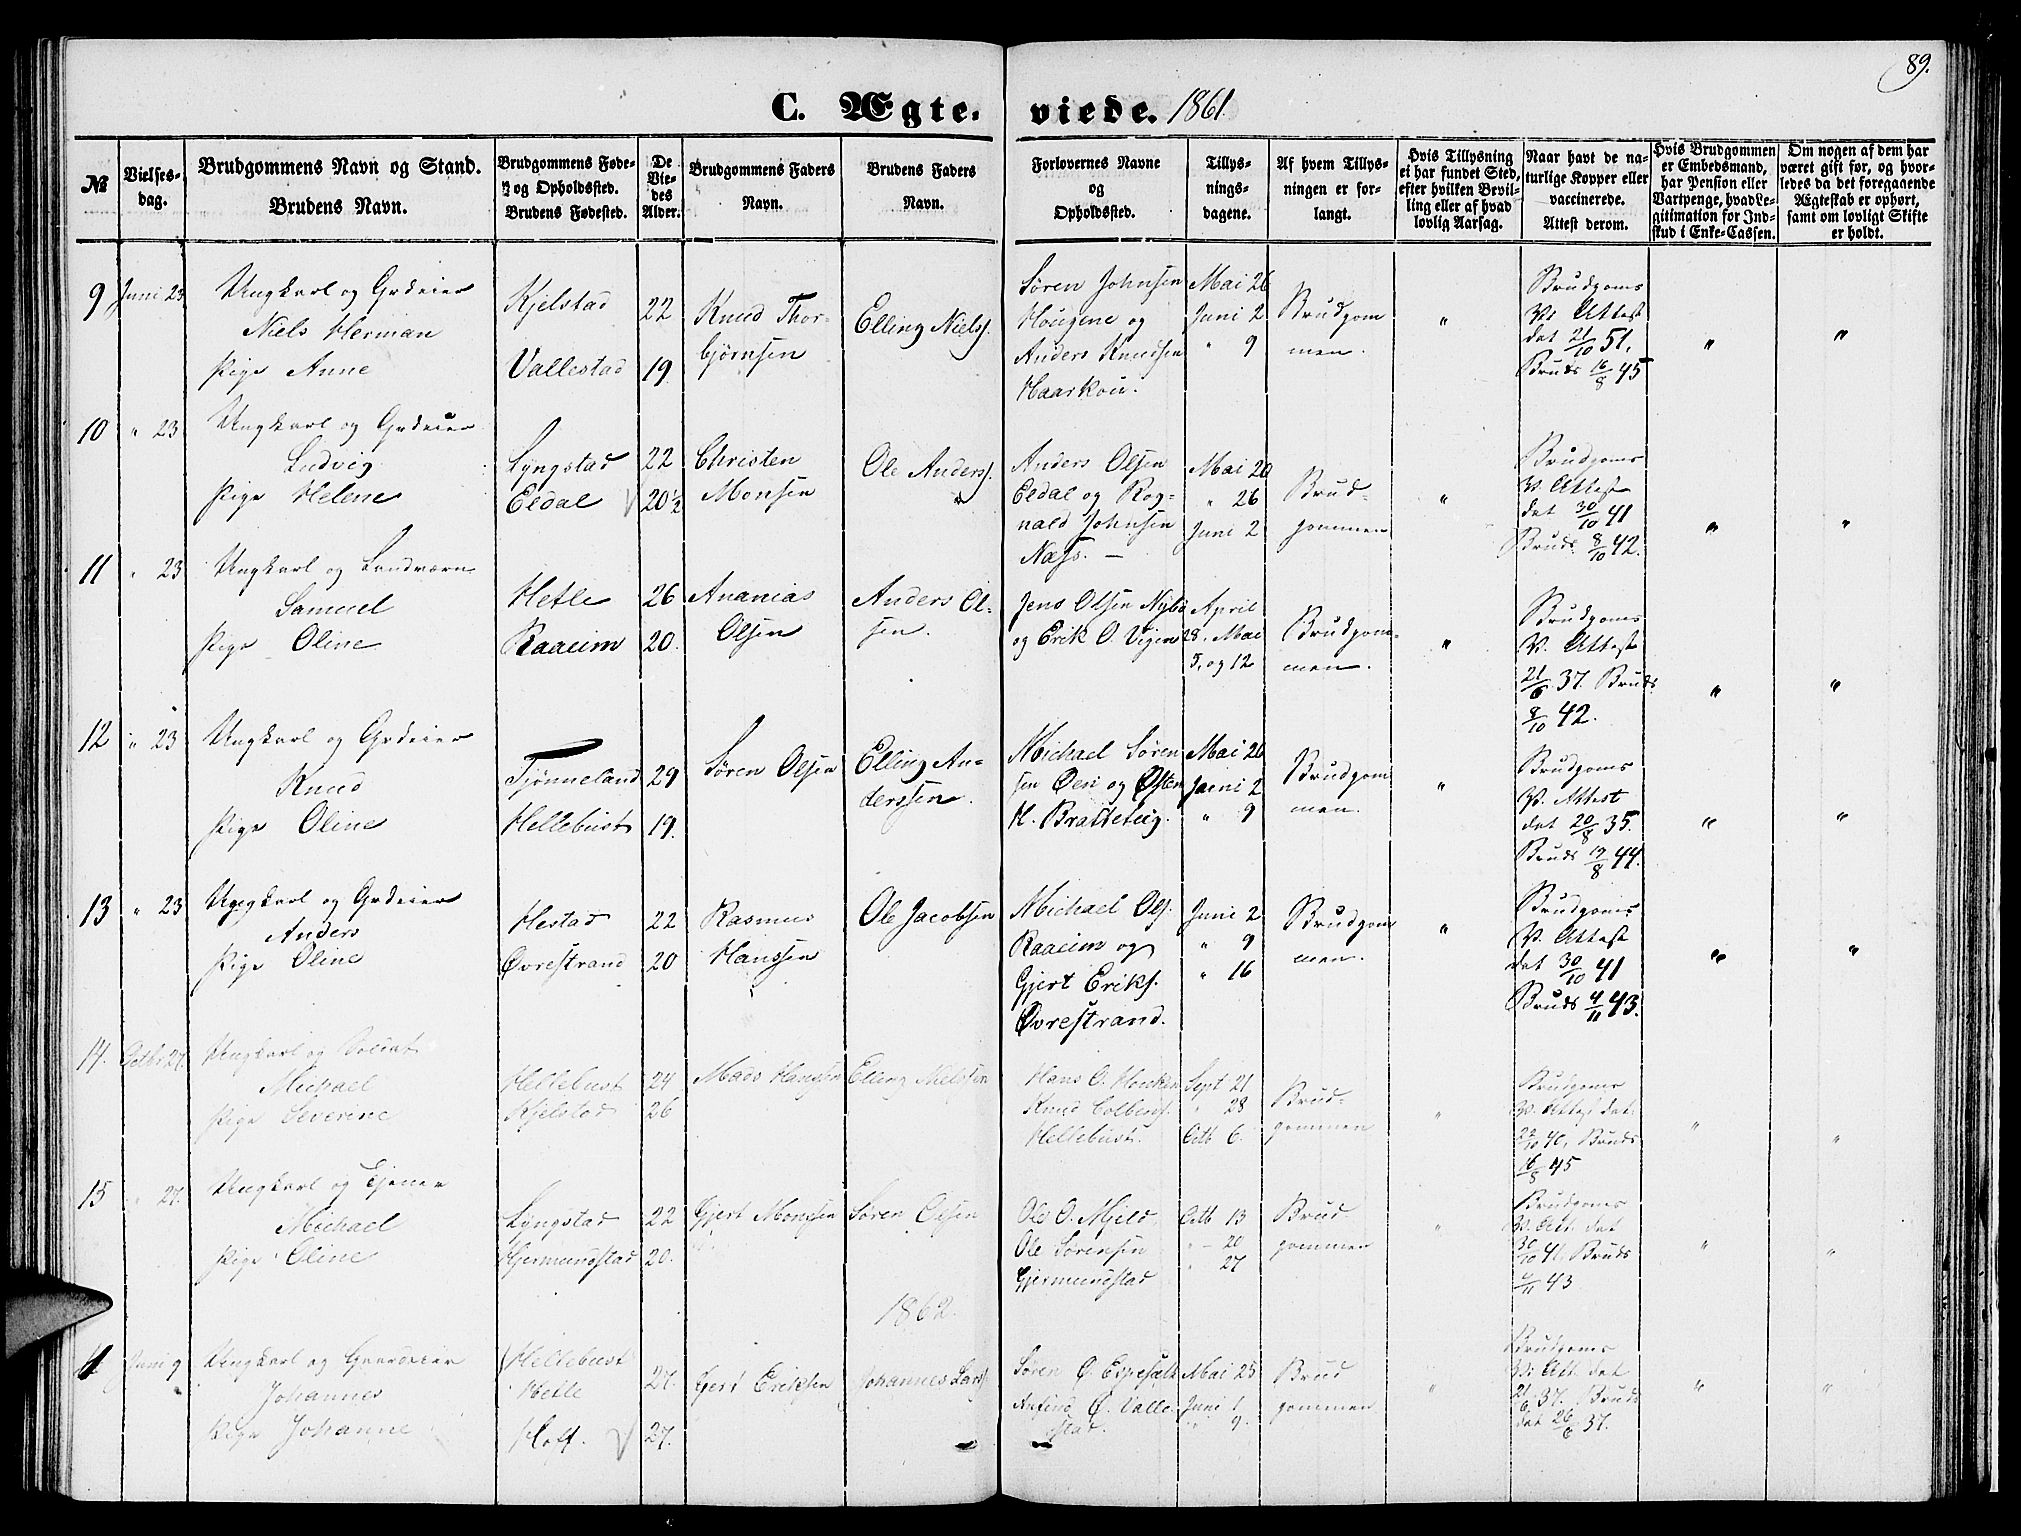 89.
C. Ægte- viede. 1861.
№
Vielses-
dag.
Brudgommens Navn og Stand.
Brudens Navn.
Brudgommens Føde-
og Opholdssted.
Brudens Fødested.
De
Vie-
des
Alder.
Brudgommens Faders
Navn.
Brudens Faders
Navn.
Forlovernes Navne
og
Opholdssted.
Tillys-
nings-
dagene.
Af hvem Tillys-
ningen er for-
langt.
Hvis Tillysning
ei har fundet Sted,
efter hvilken Bevil-
ling eller af hvad
lovlig Aarsag.
Naar havt de na-
turlige Kopper eller
vaccinerede.
Attest derom.
Hvis Brudgommen
er Embedsmand,
har Pension eller
Vartpenge, hvad Le-
gitimation for Ind-
skud i Enke-Cassen.
Om nogen af dem har
været gift før, og hvor-
ledes da det foregaaende
Ægteskab er ophørt,
samt om lovligt Skifte
er holdt.
9 Juni 23 Ungkarl og Grdeier
Niels Herman
Pige Anne
Kjelstad
Vallestad
22
19
Knud Thor-
bjørnsen
Elling Niels.
Søren Johnsen
Hougene og
Anders Knudsen
Haarkou.
Mai 26
Juni 2
" 9
Brudgom
men.
"
Brudgoms
V. Attest
dat 21/10 51,
Bruds 16/8 45
"
"
10 " 23 Ungkarl og Grdeier
Ludvig
Pige Helene
Lyngstad
Eldal
22
20 1/2
Christen
Monsen
Ole Anders.
Anders Olsen
Eldal og Rog-
nald Johnsen
Næss. —
Mai 20
" 26
Juni 2
Brud-
gommen
"
Brudgoms
V. Attest
dat 30/10 41
Bruds 8/10 42.
"
"
11 " 23 Ungkarl og Landværn
Samuel
Pige Oline
Hetle
Raaeim
26
20.
Ananias
Olsen
Anders Ol-
sen.
Jens Olsen Nybø
og Erik O. Vigen
April
28, Mai
5, og 12
Brudgom-
men.
"
Brudgoms
V. Attest
21/6 37. Bruds
9/10 42.
"
"
12 " 23 Ungkarl og Grdeier
Knud
Pige Oline
Tjønneland
Hellebust
29
19.
Søren Olsen
Elling An-
derssen.
Michael Søren
sen Øen og Østen
H. Bratteteig.
Mai 26
Juni 2
" 9
Brudgom
men.
"
Brudgoms
V. Attest
dat 20/8 35.
Bruds 19/8 44.
"
"
13 " 23 Ungkarl og Grdeier
Anders
Pige Oline
Hestad
Øvrestrand
22
20
Rasmus
Hanssen
Ole Jacobsen
Michael Ols.
Raaeim og
Gjert Eriks.
Øvrestrand.
Juni 2
" 9
" 16
Brudgom
men.
"
Brudgoms
V. Attest
dat 30/10 41
Bruds 4/11 43.
"
"
14. Octbr 27. Ungkarl og Soldat
Michael
Pige Severine
Hellebust
Kjelstad
24
26
Mads Hanssen
Elling Nielssen
Hans O. Houkan
Knud Colbens.
Hellebust.
Sept 21
" 28
Octb 6.
Brud-
gommen
"
Brudgoms
V. Attest dat.
22/10 40, Bruds
16/8 45
"
"
15 " 27. Ungkarl og Tjener
Michael
Pige Oline
Lyngstad
Gjermundstad
22
20.
Gjert Monssen
Søren Olsen
Ole O. Mjeld
Ole Sørensen
Gjermundstad
Octb 13
" 20
" 27
Brud
gommen
"
Brudgoms
V. Att. dat
30/10 41 Bruds
4/11 43
"
"
1862.
1 Juni 9 Ungkarl og Gaardeier
Johannes
Pige Johanne
Hellebust
Hetle
Hoff.
27.
27.
Gjert Eriksen
Johannes Lars.
Søren O. Espesæth
Anfind O. Valle-
stad.
Mai 25
Juni 1
" 9.
Brud
gommen
"
Brudgoms
V. Att dat
21/6 37. Bruds
dat 26/6 37.
"
"